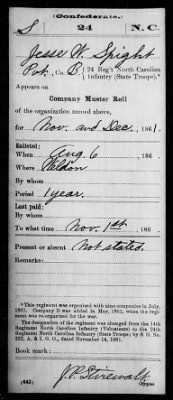 (Confederate.)
S 24 N. C.
Jesse W. Spight
Pvt., Co. B, 24 Reg't North Carolina
Infantry (State Troops).*
Appears on
Company Muster Roll
of the organization named above,
for Nov. and Dec., 1861.
Enlisted:
When Aug. 6, 186
Where Weldon
By whom
Period 1 year.
Last paid:
By whom
To what time Nov. 1st, 186
Present or absent Not stated.
Remarks:
*This regiment was organized with nine companies in July,
1861. Company D was added in May, 1862, when the regi-
ment was re-organized for the war.
The designation of the regiment was changed from the 14th
Regiment North Carolina Infantry (Volunteers) to the 24th
Regiment North Carolina Infantry (State Troops) by S. O. No.
222, A. & I. G. O., dated November 14, 1861.
Book mark:
J. P. Stirewalt
(642) Copyist.